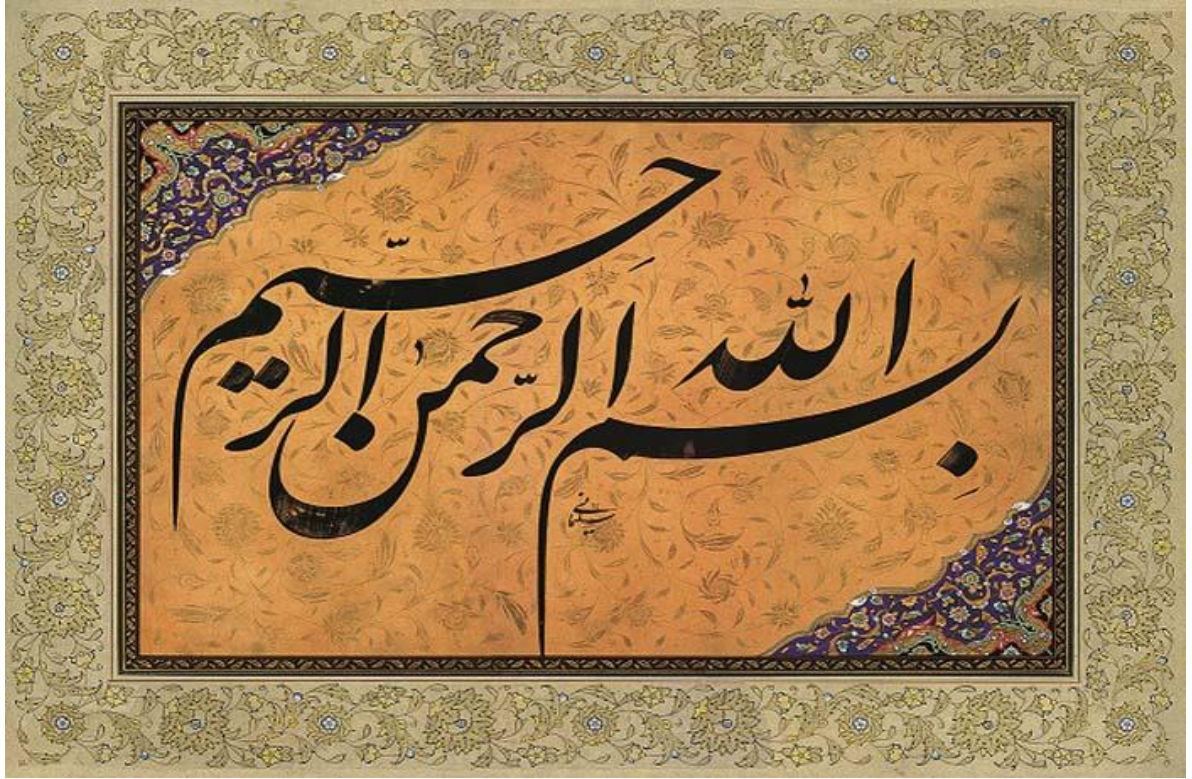 بِسم الله الرَّحمن الرَّحیم